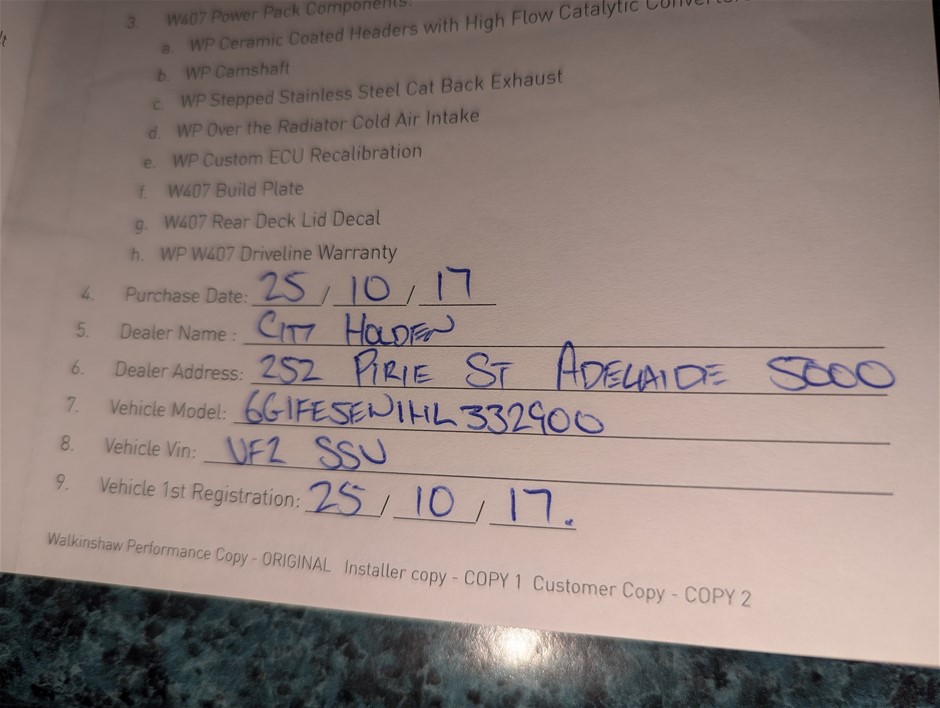 3. W407 Power Pack Components:
a. WP Ceramic Coated Headers with High Flow Catalytic
b. WP Camshaft
c. WP Stepped Stainless Steel Cat Back Exhaust
d. WP Over the Radiator Cold Air Intake
e. WP Custom ECU Recalibration
f. W407 Build Plate
g. W407 Rear Deck Lid Decal
h. WP W407 Driveline Warranty
4. Purchase Date: 25 / 10 / 17
5. Dealer Name : CITY HOLDEN
6. Dealer Address: 252 PIRIE ST ADELAIDE 5000
7. Vehicle Model: 6G1FE5EW1HL332900
8. Vehicle Vin: VF2 SSV
9. Vehicle 1st Registration: 25 / 10 / 17.
Walkinshaw Performance Copy - ORIGINAL Installer copy - COPY 1 Customer Copy - COPY 2